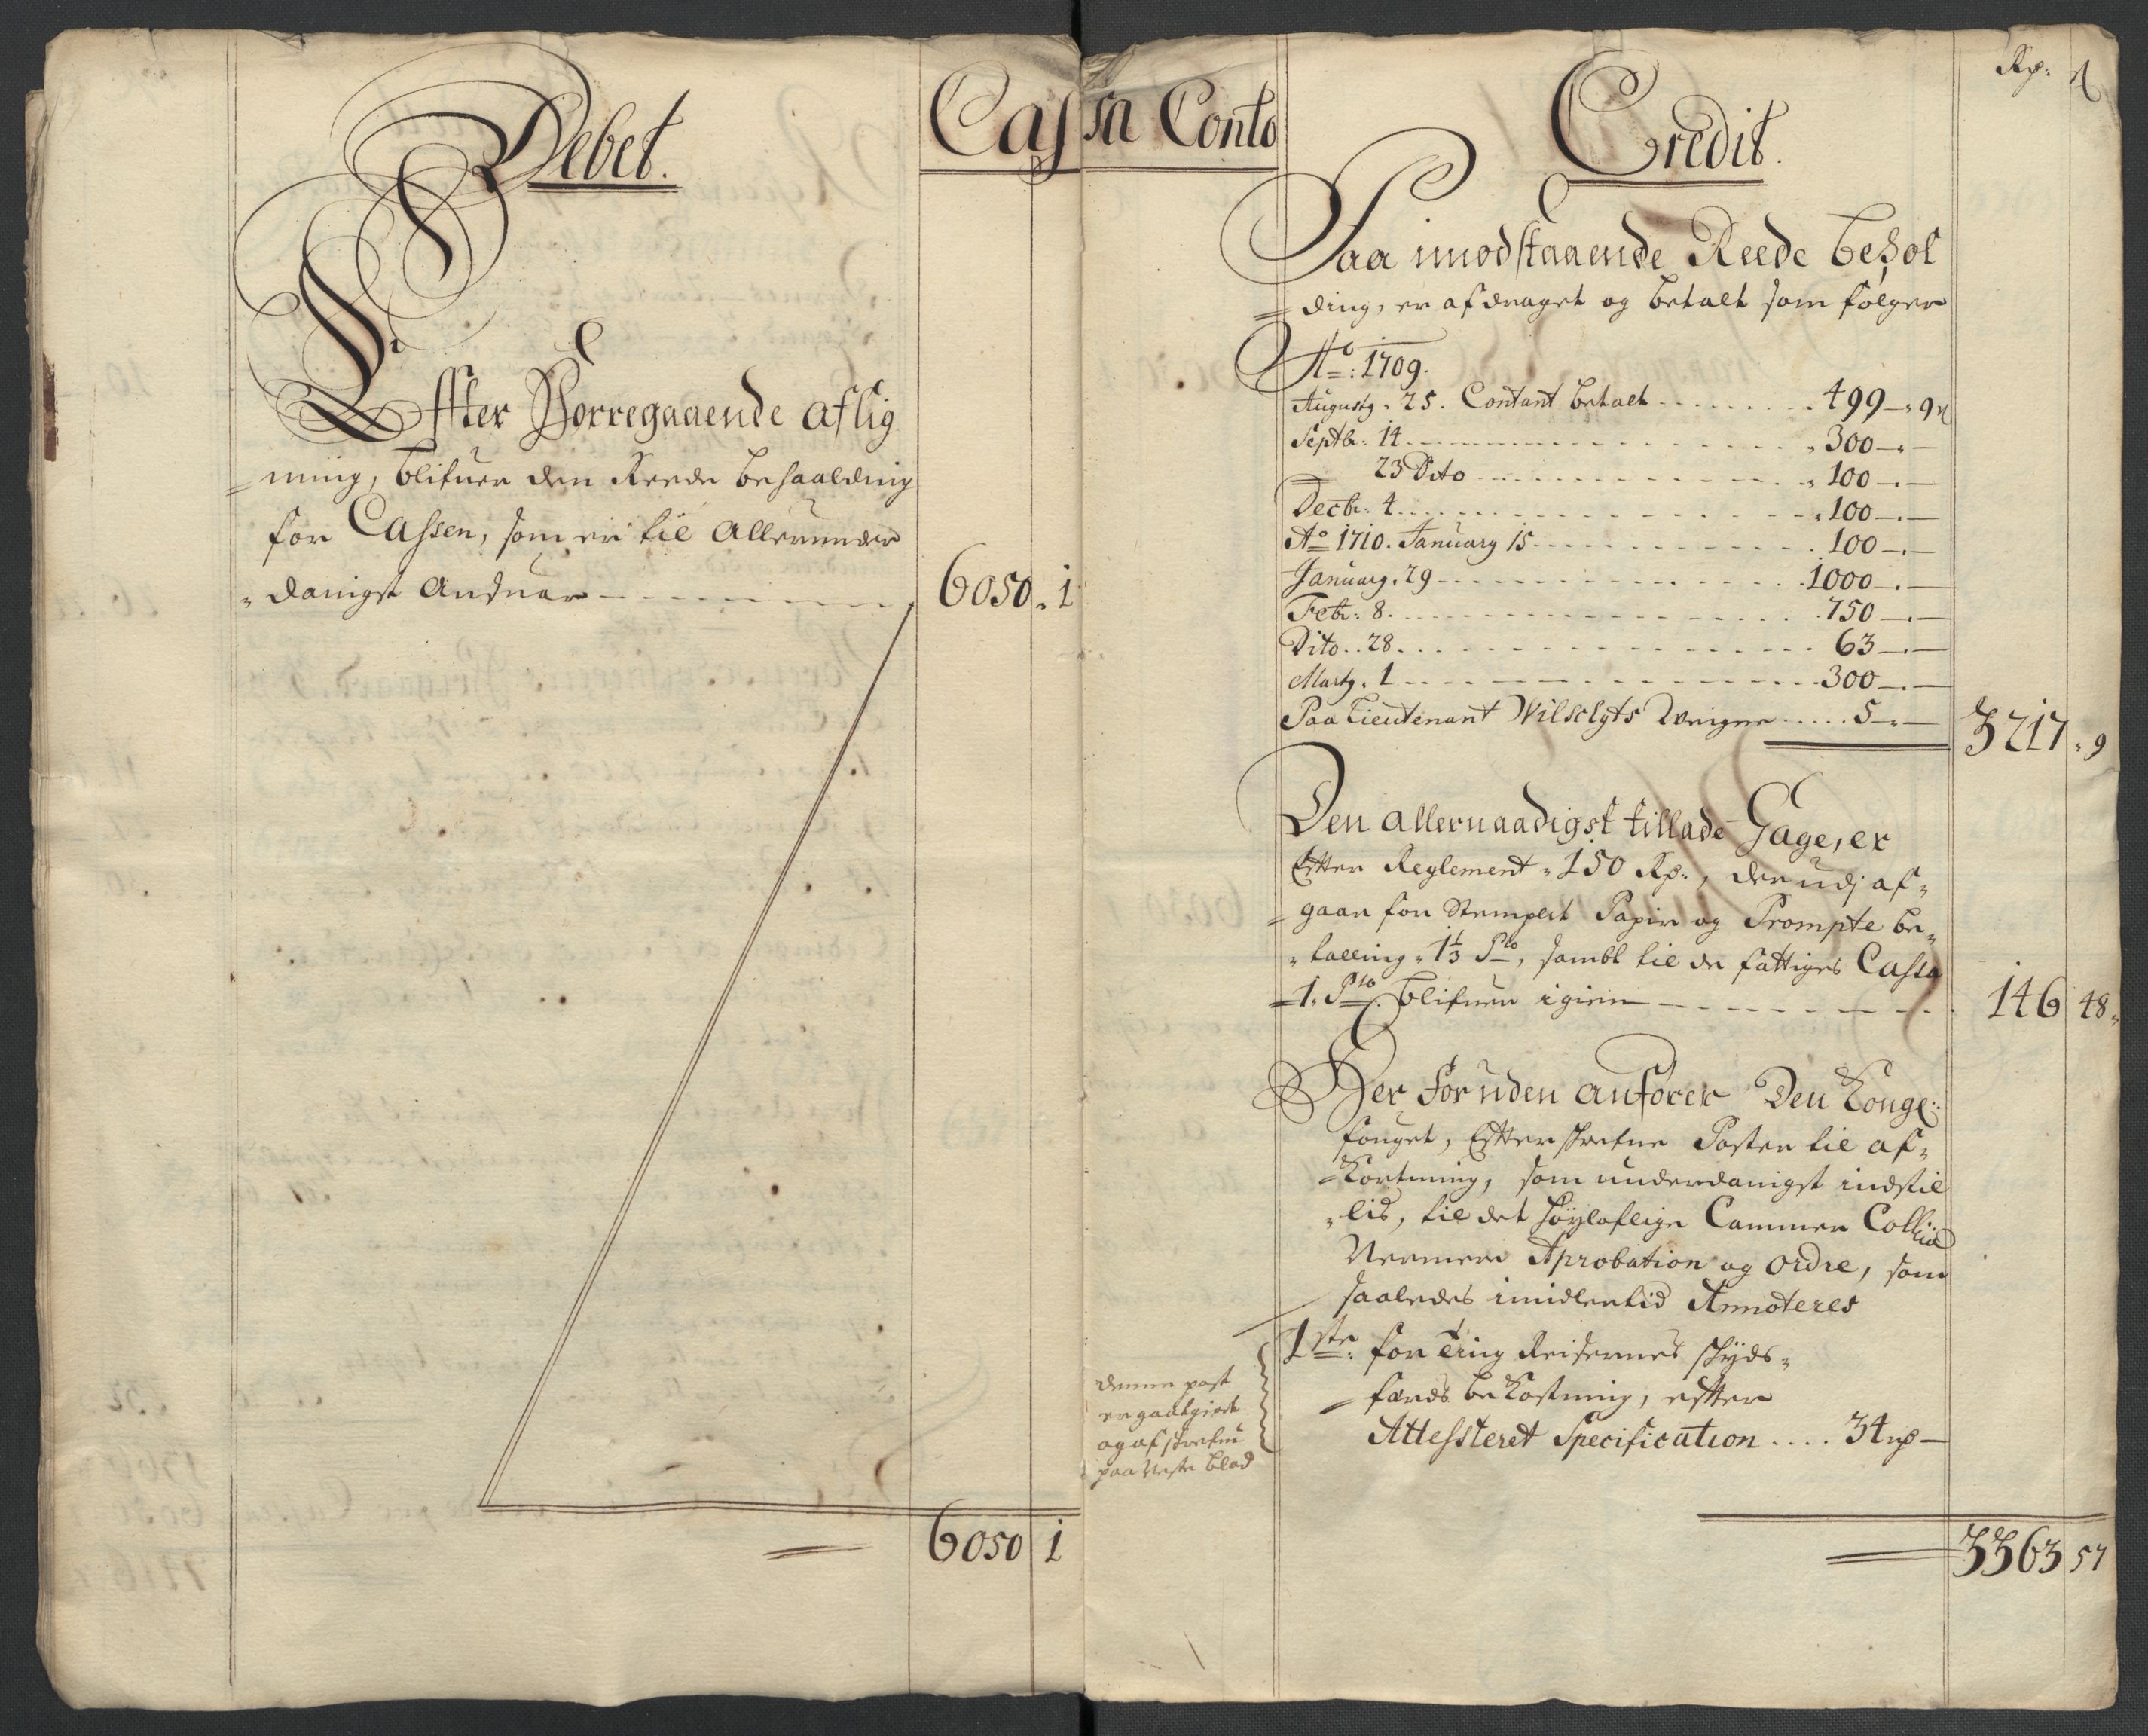 Debet.
Cassa Conto
Efter Forregaaende aflig
ning, blifuer den Reede behaalding
for Cassen, som er til Allerunder
danigst Ansuar 6050. 1
6050 1
Credit.
Rp: ß
Paa imodstaaende Reede behol
ding, er afdraget og betalt som følger
Ao: 1709.
Augusty. 25. Contant betalt 499 - 9 ß
Septbr: 14 300 -
23 Dito 100 -
Decbr: 4 100 -
Ao 1710. January 15 100 -
January. 29 1000 -
Febr: 8. 750 -
Dito. 28. 63 -
Marty. 1 300 -
Paa Lieutenant Wilschyts Weigne 5 -
3217. 9
Den allernaadigst tillade Gage, er
Efter Reglement. 150 Rp:, der udj af-
gaar for Stemplet Papir og Prompte be-
talling. 1⅓ Pto, sambt til de fattiges Cassa
1. Pto. blifuer igien 146 48
Der foruden anfører Den Konge:
fouget, Efterskrefne Poster til af-
Kortning, som underdanigst indstil
lis, til det høyloflige Cammer Collegii
Nermere Aprobation og ordre, som
saaledes imidlertid Annoteres
1ste. for Ting Reisernes skyds-
færds bekostning, efter
Attessteret Specification .... 34 rp -
denne post
er gaatgiort
og afskrefn
paa neste blad
3363 57